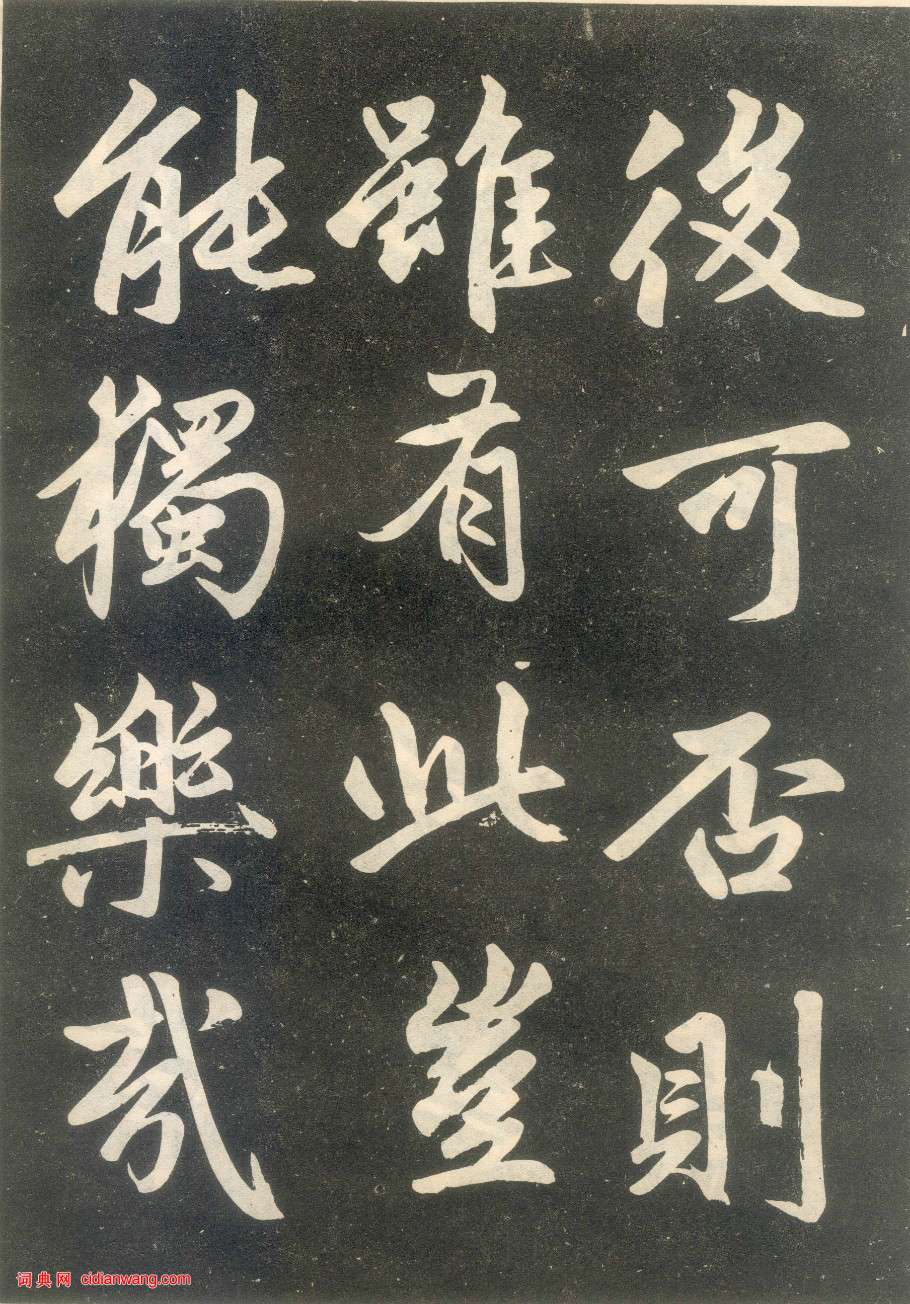 後可否則
雖有此豈
能獨樂哉
词典网 cidianwang.com